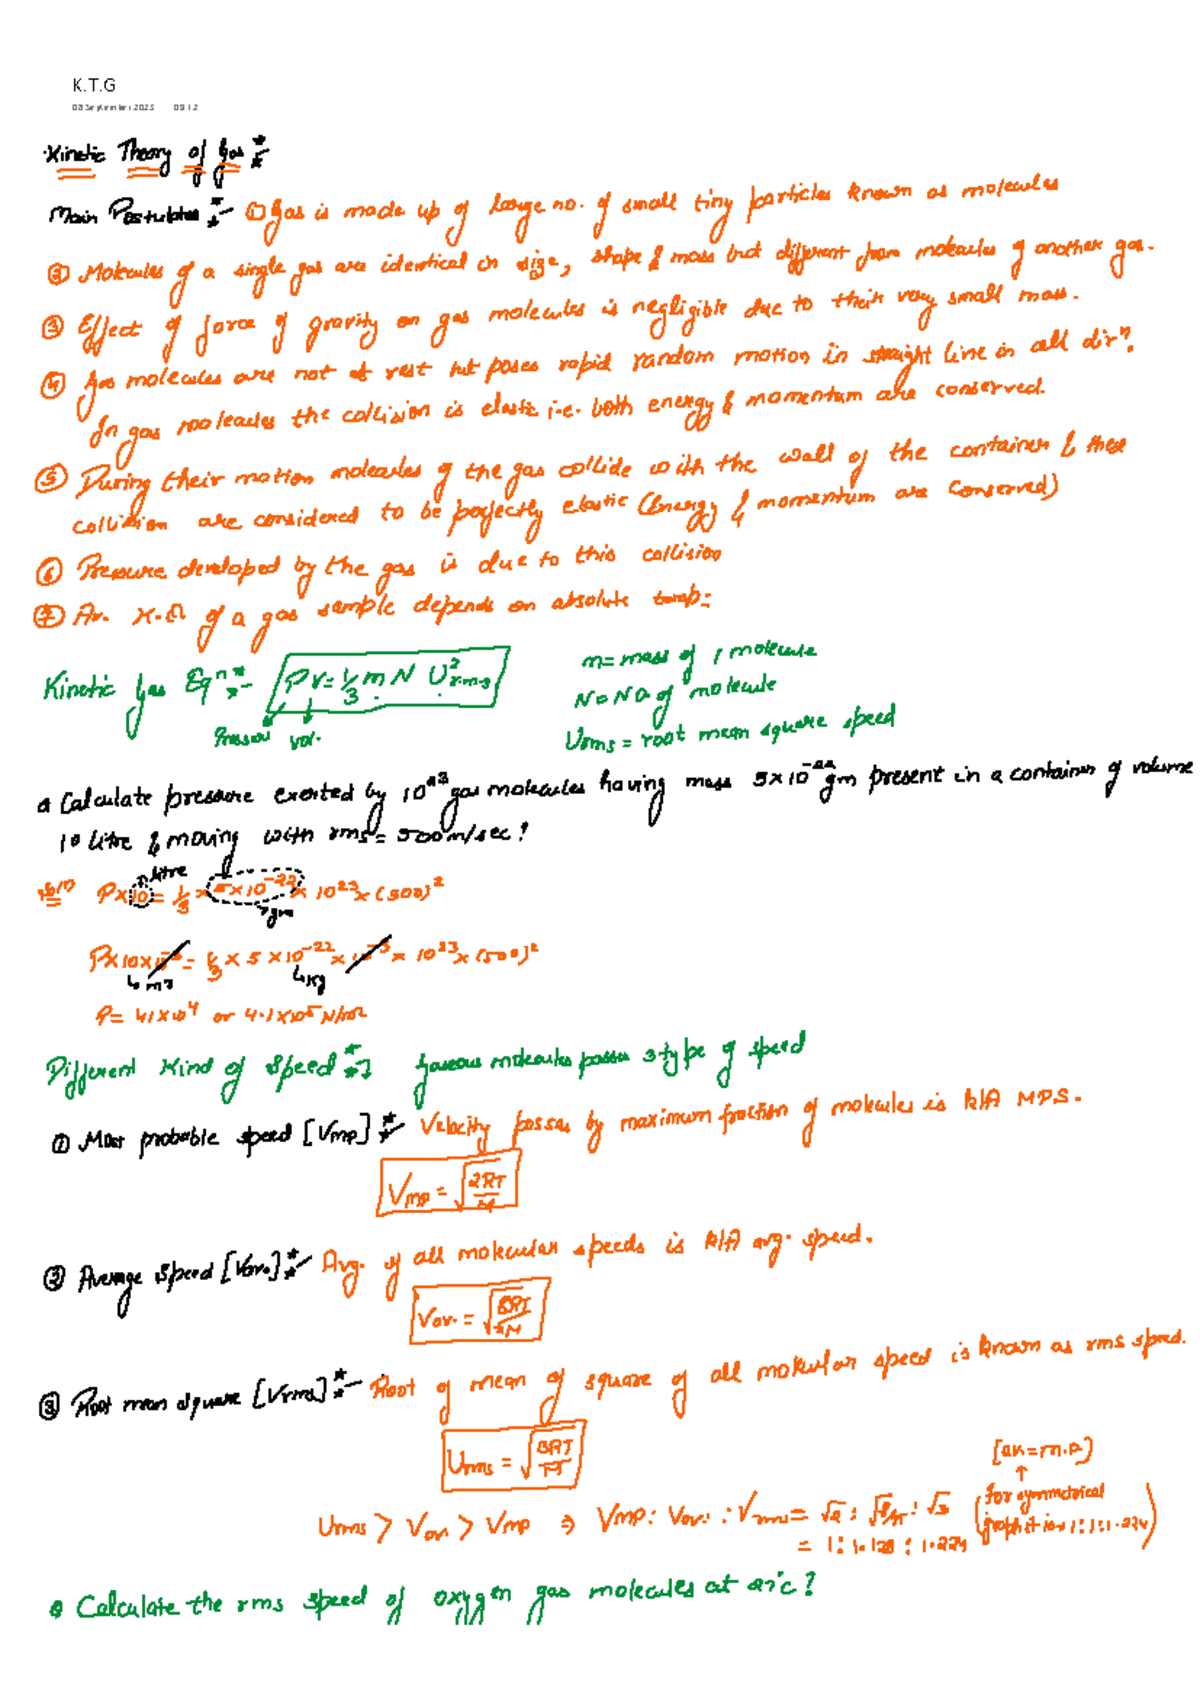 K.T.G
08 September 2025 09:12
Kinetic Theory of Gas :-
Main Postulates :- ① Gas is made up of large no. of small tiny particles known as molecules
② Molecules of a single gas are identical in size, shape & mass but different from molecules of another gas.
③ Effect of force of gravity on gas molecules is negligible due to their very small mass.
④ Gas molecules are not at rest but poses rapid random motion in straight line in all dirⁿ.
In gas molecules the collision is elastic i.e. both energy & momentum are conserved.
⑤ During their motion molecules of the gas collide with the wall of the container & these
collision are considered to be perfectly elastic (Energy & momentum are conserved)
⑥ Pressure developed by the gas is due to this collision
⑦ Av. K.E of a gas sample depends on absolute temp:
Kinetic gas Eqⁿ :- PV = 1/3 m N U²r.m.s m = mass of 1 molecule
Pressure vol. N = NO of molecule
Urms = root mean square speed
Q Calculate pressure exerted by 10²³ gas molecules having mass 5×10⁻²² gm present in a container of volume
10 litre & moving with rms = 500 m/sec ?
litre
P×10 = 1/3 × 5×10⁻²² × 10²³ × (500)²
gm
P×10×10⁻³ = 1/3 × 5 × 10⁻²² × 10⁻³ × 10²³ × (500)²
m³ kg
P = 41×10⁴ or 4.1×10⁵ N/m²
Different Kind of Speed :- gaseous molecules posses 3 type of speed
① Most probable speed [Vmp] :- Velocity posses by maximum fraction of molecules is k/A MPS.
Vmp = √2RT/M
② Average Speed [Vav.] :- Avg. of all molecular speeds is k/A avg. speed.
Vav. = √8RT/πM
③ Root mean square [Vrms] :- Root of mean of square of all molecular speed is known as rms speed.
Urms = √3RT/M
[av = m.p]
Urms > Vav > Vmp ⇒ Vmp : Vav. : Vrms = √2 : √8/π : √3 (for symmetrical
= 1 : 1.128 : 1.224 graph it is 1 : 1 : 1.224)
Q Calculate the rms speed of oxygen gas molecules at 27°C ?